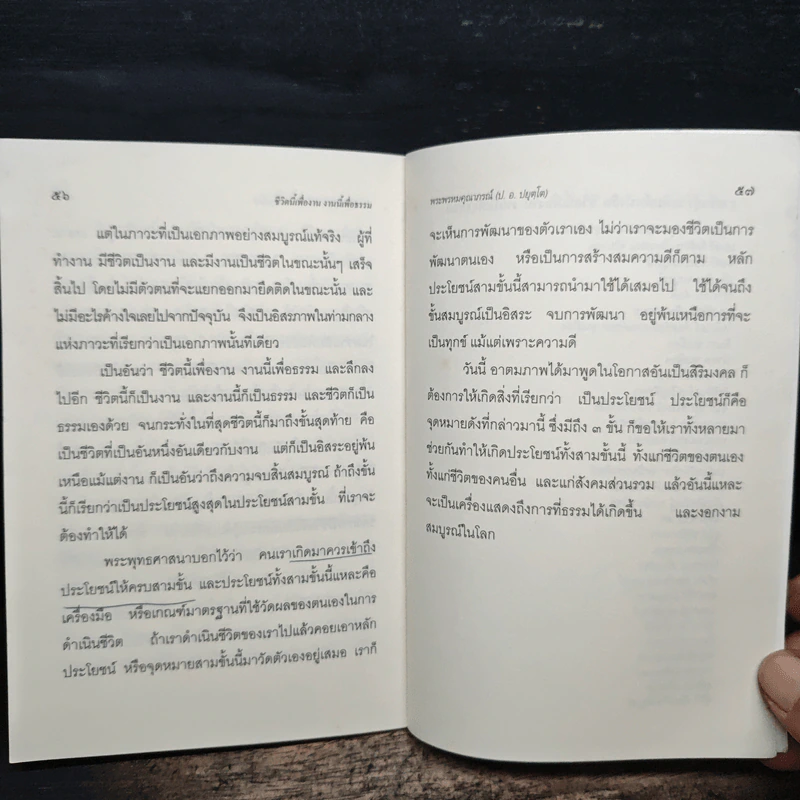 ๕๖
ชีวิตนี้เพื่องาน งานนี้เพื่อธรรม
แต่ในภาวะที่เป็นเอกภาพอย่างสมบูรณ์แท้จริง ผู้ที่
ทำงาน มีชีวิตเป็นงาน และมีงานเป็นชีวิตในขณะนั้นๆ เสร็จ
สิ้นไป โดยไม่มีตัวตนที่จะแยกออกมายึดติดในขณะนั้น และ
ไม่มีอะไรค้างใจเลยไปจากปัจจุบัน จึงเป็นอิสรภาพในท่ามกลาง
แห่งภาวะที่เรียกว่าเป็นเอกภาพนั้นทีเดียว
เป็นอันว่า ชีวิตนี้เพื่องาน งานนี้เพื่อธรรม และลึกลง
ไปอีก ชีวิตนี้ก็เป็นงาน และงานนี้ก็เป็นธรรม และชีวิตก็เป็น
ธรรมเองด้วย จนกระทั่งในที่สุดชีวิตนี้ก็มาถึงขั้นสุดท้าย คือ
เป็นชีวิตที่เป็นอันหนึ่งอันเดียวกับงาน แต่ก็เป็นอิสระอยู่พ้น
เหนือแม้แต่งาน ก็เป็นอันว่าถึงความจบสิ้นสมบูรณ์ ถ้าถึงขั้น
นี้ก็เรียกว่าเป็นประโยชน์สูงสุดในประโยชน์สามขั้น ที่เราจะ
ต้องทำให้ได้
พระพุทธศาสนาบอกไว้ว่า คนเราเกิดมาควรเข้าถึง
ประโยชน์ให้ครบสามขั้น และประโยชน์ทั้งสามขั้นนี้แหละคือ
เครื่องมือ หรือเกณฑ์มาตรฐานที่ใช้วัดผลของตนเองในการ
ดำเนินชีวิต ถ้าเราดำเนินชีวิตของเราไปแล้วคอยเอาหลัก
ประโยชน์ หรือจุดหมายสามขั้นนี้มาวัดตัวเองอยู่เสมอ เราก็
พระพรหมคุณาภรณ์ (ป. อ. ปยุตฺโต)
๕๗
จะเห็นการพัฒนาของตัวเราเอง ไม่ว่าเราจะมองชีวิตเป็นการ
พัฒนาตนเอง หรือเป็นการสร้างสมความดีก็ตาม หลัก
ประโยชน์สามขั้นนี้สามารถนำมาใช้ได้เสมอไป ใช้ได้จนถึง
ขั้นสมบูรณ์เป็นอิสระ จบการพัฒนา อยู่พ้นเหนือการที่จะ
เป็นทุกข์ แม้แต่เพราะความดี
วันนี้ อาตมภาพได้มาพูดในโอกาสอันเป็นสิริมงคล ก็
ต้องการให้เกิดสิ่งที่เรียกว่า เป็นประโยชน์ ประโยชน์ก็คือ
จุดหมายดังที่กล่าวมานี้ ซึ่งมีถึง ๓ ขั้น ก็ขอให้เราทั้งหลายมา
ช่วยกันทำให้เกิดประโยชน์ทั้งสามขั้นนี้ ทั้งแก่ชีวิตของตนเอง
ทั้งแก่ชีวิตของคนอื่น และแก่สังคมส่วนรวม แล้วอันนี้แหละ
จะเป็นเครื่องแสดงถึงการที่ธรรมได้เกิดขึ้น และงอกงาม
สมบูรณ์ในโลก